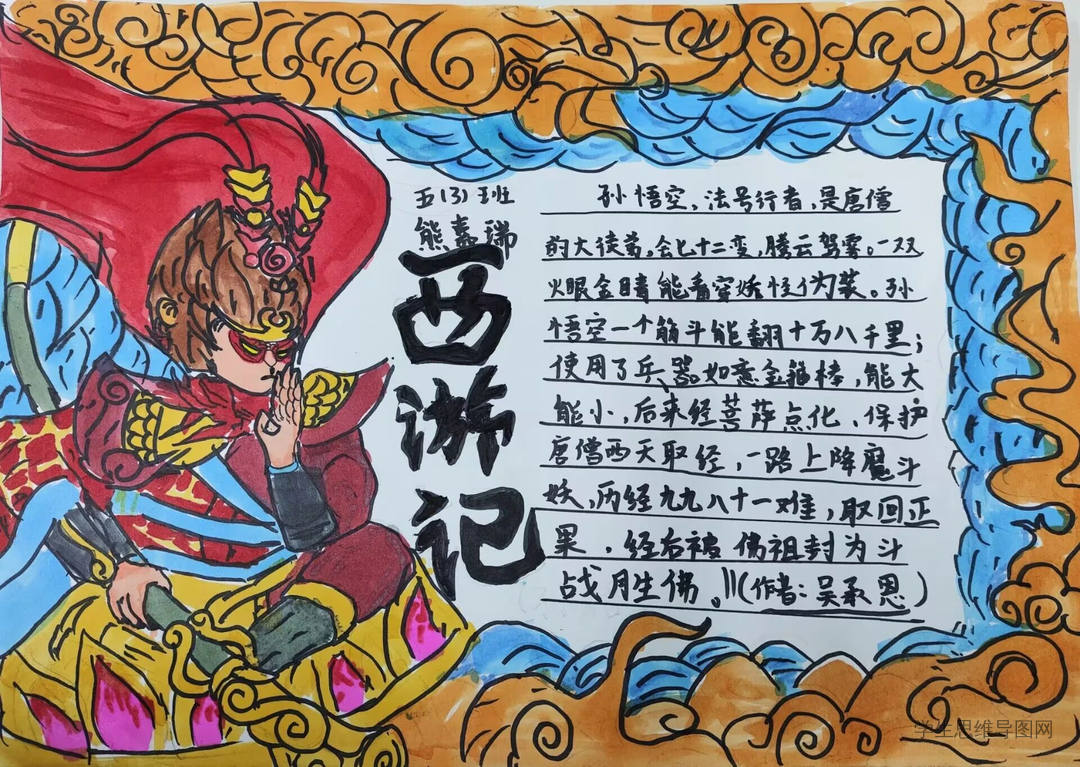 五(3)班
熊嘉瑞
西游记
孙悟空，法号行者，是唐僧
的大徒弟，会七十二变，腾云驾雾。一双
火眼金睛能看穿妖怪伪装。孙
悟空一个筋斗能翻十万八千里；
使用了兵器如意金箍棒，能大
能小，后来经菩萨点化、保护
唐僧西天取经，一路上降魔斗
妖，历经九九八十一难，取回正
果，经后被佛祖封为斗
战月生佛。‖(作者：吴承恩)
学生思维导图网